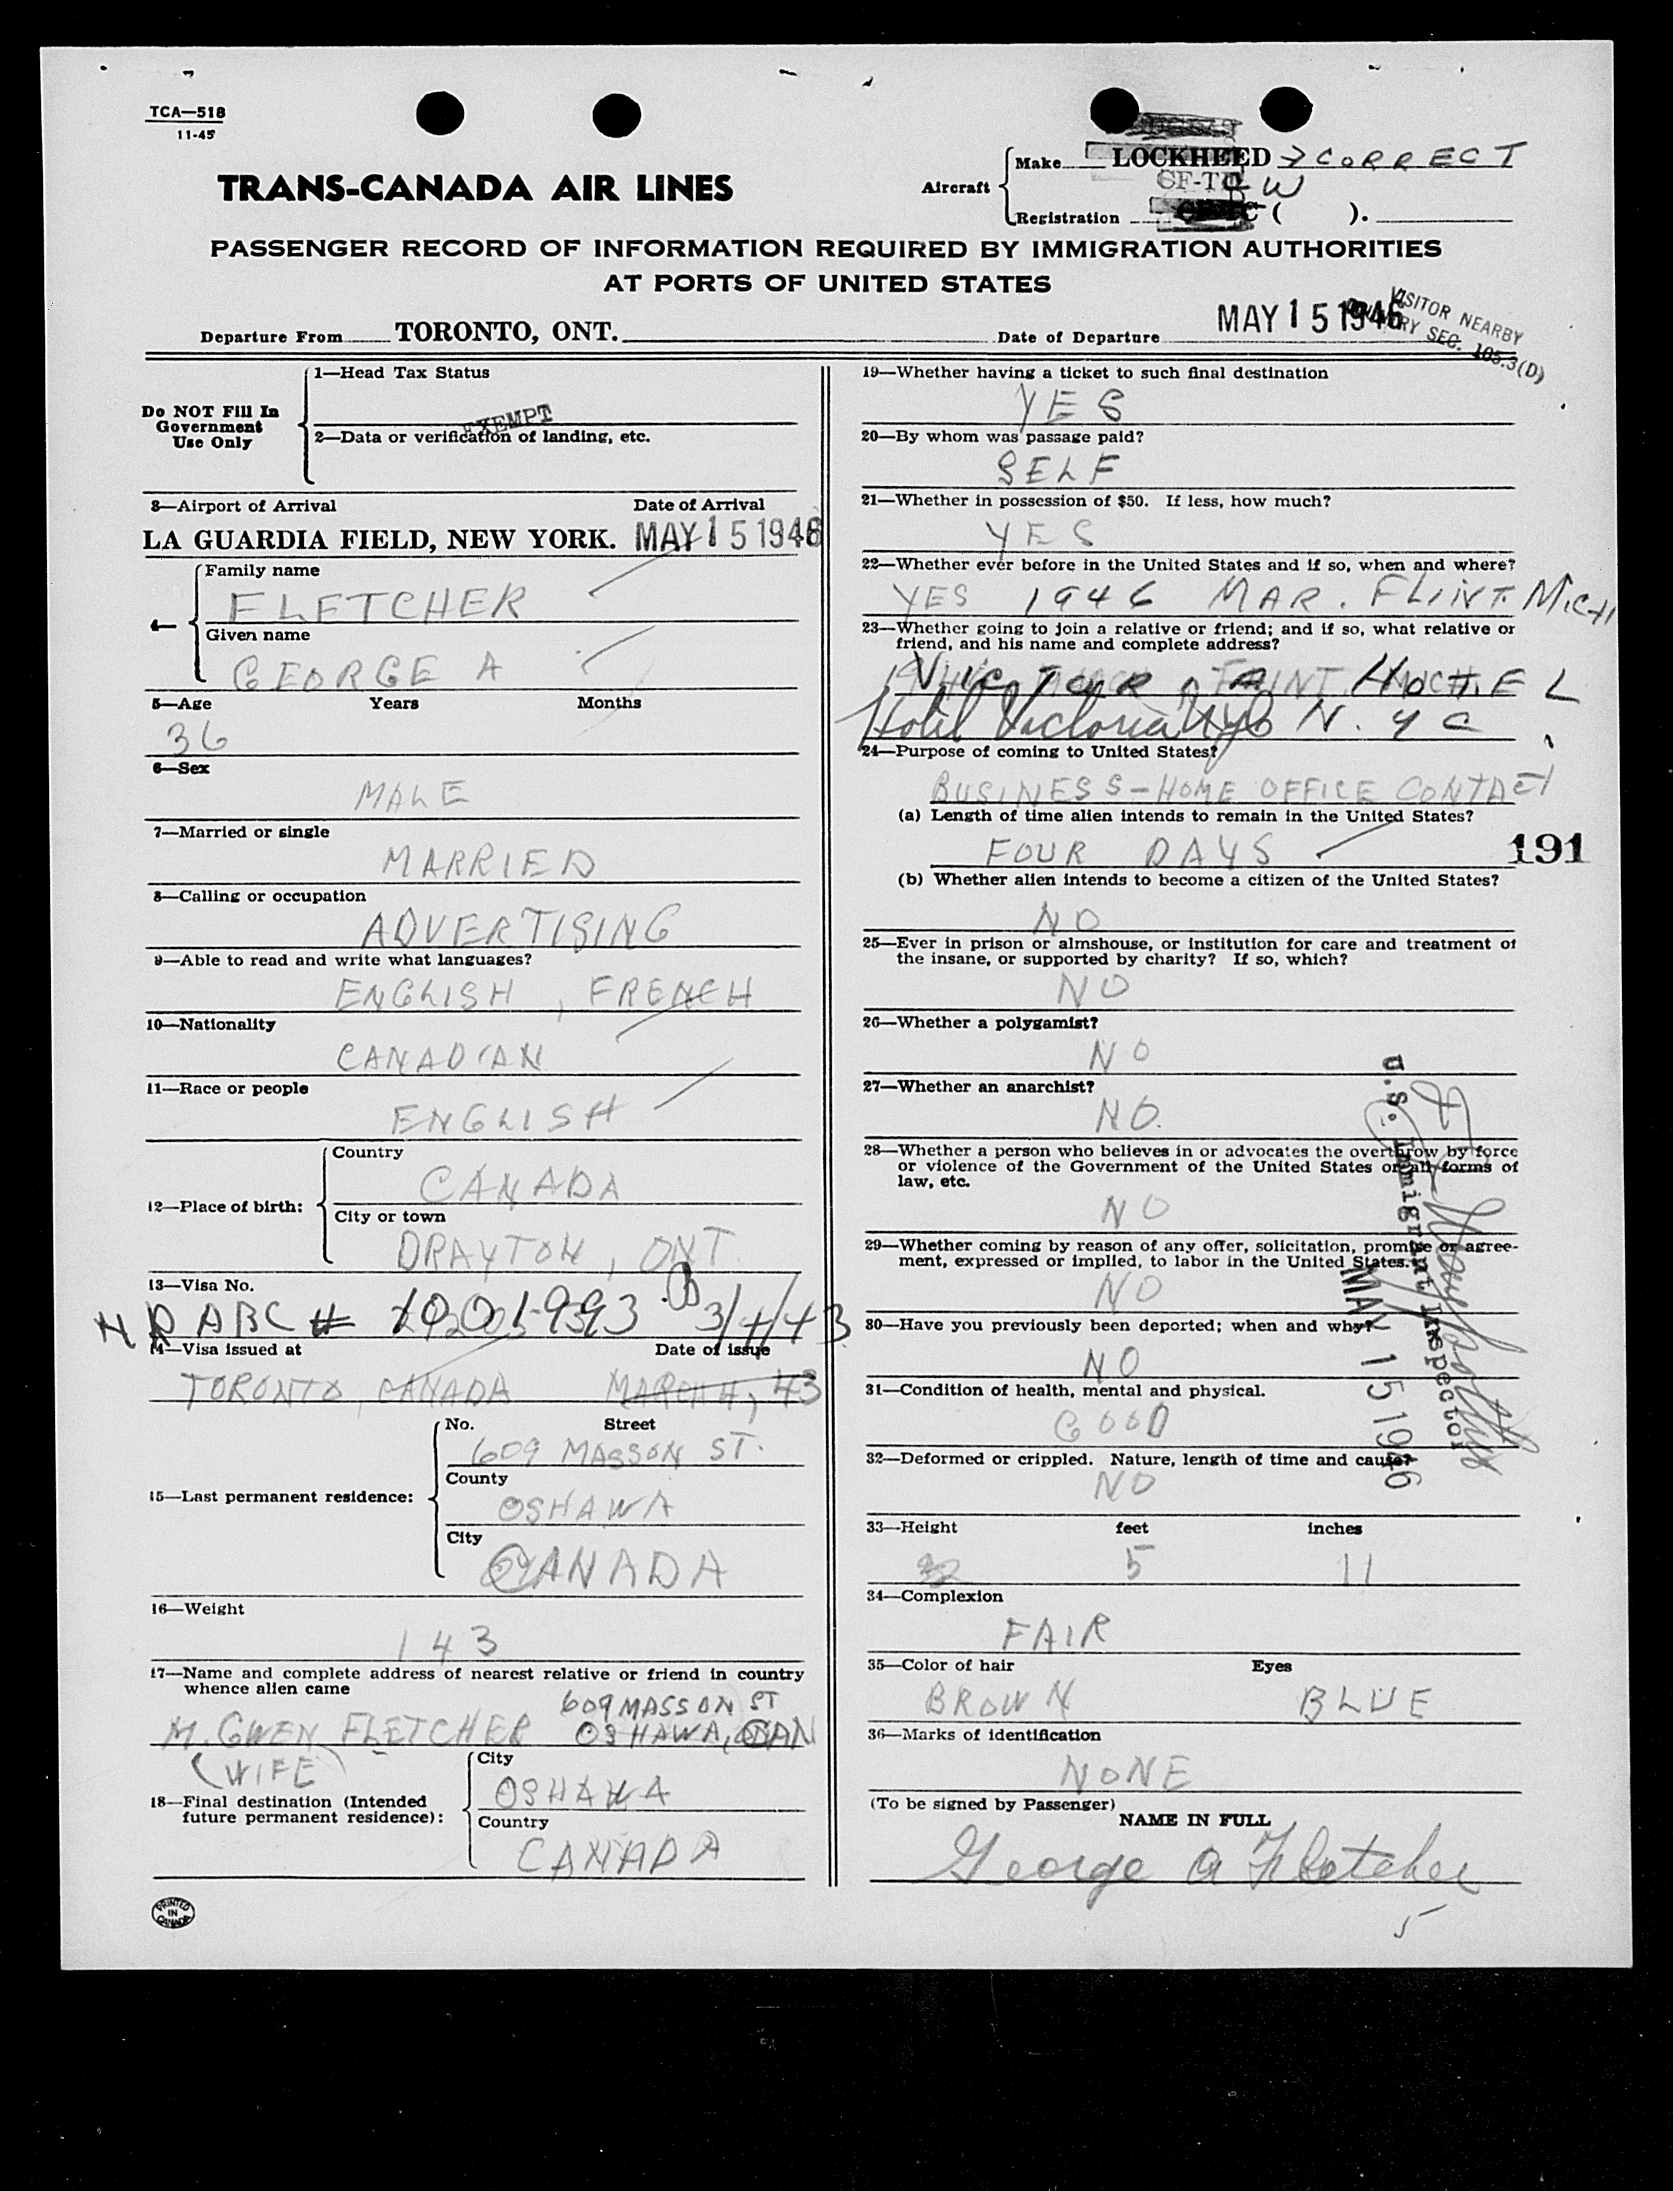 TCA—518
11-45
TRANS-CANADA AIR LINES
Aircraft
Make LOCKHEED → CORRECT
CF-T W
Registration ( ).
PASSENGER RECORD OF INFORMATION REQUIRED BY IMMIGRATION AUTHORITIES
AT PORTS OF UNITED STATES
Departure From TORONTO, ONT. Date of Departure MAY 15 1946
VISITOR NEARBY
COUNTRY SEC. 105.3(D)
Do NOT Fill In
Government
Use Only
1—Head Tax Status
EXEMPT
2—Data or verification of landing, etc.
3—Airport of Arrival Date of Arrival
LA GUARDIA FIELD, NEW YORK. MAY 15 1946
4—
Family name
FLETCHER
Given name
GEORGE A
5—Age Years Months
36
6—Sex
MALE
7—Married or single
MARRIED
8—Calling or occupation
ADVERTISING
9—Able to read and write what languages?
ENGLISH, FRENCH
10—Nationality
CANADIAN
11—Race or people
ENGLISH
12—Place of birth:
Country
CANADA
City or town
DRAYTON, ONT.
13—Visa No.
NR ABC # 993 3/4/43
14—Visa issued at Date of issue
TORONTO, CANADA MARCH 4, 43
15—Last permanent residence:
No. Street
609 MASSON ST.
County
OSHAWA
City
CANADA
16—Weight
143
17—Name and complete address of nearest relative or friend in country
whence alien came
609 MASSON ST
M. GWEN FLETCHER OSHAWA, CAN
(WIFE)
18—Final destination (Intended
future permanent residence):
City
OSHAWA
Country
CANADA
PRINTED
IN
CANADA
19—Whether having a ticket to such final destination
YES
20—By whom was passage paid?
SELF
21—Whether in possession of $50. If less, how much?
YES
22—Whether ever before in the United States and if so, when and where?
YES 1946 MAR. FLINT. MICH
23—Whether going to join a relative or friend; and if so, what relative or
friend, and his name and complete address?
VICTORIA HOTEL
Hotel Victoria NYC N.Y C
24—Purpose of coming to United States?
BUSINESS - HOME OFFICE CONTACT
(a) Length of time alien intends to remain in the United States?
FOUR DAYS
191
(b) Whether alien intends to become a citizen of the United States?
NO
25—Ever in prison or almshouse, or institution for care and treatment of
the insane, or supported by charity? If so, which?
NO
26—Whether a polygamist?
NO
27—Whether an anarchist?
NO.
28—Whether a person who believes in or advocates the overthrow by force
or violence of the Government of the United States or all forms of
law, etc.
NO
29—Whether coming by reason of any offer, solicitation, promise or agree-
ment, expressed or implied, to labor in the United States.
NO
30—Have you previously been deported; when and why?
NO
31—Condition of health, mental and physical.
GOOD
32—Deformed or crippled. Nature, length of time and cause?
NO
U.S. Immigrant Inspector
MAY 15 1946
33—Height feet inches
5 11
34—Complexion
FAIR
35—Color of hair Eyes
BROWN BLUE
36—Marks of identification
NONE
(To be signed by Passenger)
NAME IN FULL
George A Fletcher
5